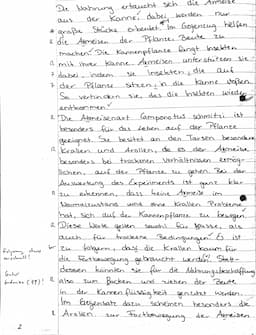 Die Nahrung ertaucht sich die Ameise
aus der Kanne, dabei werden nur
große Stücke erbeutet. Im Gegenzug helfen
die Ameisen der Pflanze Beute zu
machen. Die Kannenpflanze fängt Insekten
mit ihrer Kanne. Ameisen unterstützen sie
dabei indem sie Insekten, die auf
der Pflanze sitzen, in die Kanne
So verhindern sie das die Insekten wieder
entkommen.
Die Ameisenart Camponotus schmitzi ist
besonders für das Leben auf der Pflanze
geeignet. Sie besitzt an den Tarsen besondere
Krallen und Arolien, die es der Ameise
besonders bei trockenen Verhältnissen ermög-
lichen, auf der Pflanze zu gehen. Bei der
Auswertung des Experiments ist ganz klar
zu erkennen, dass keine Ameise im
Normalzustand und ohne Krallen Probleme
hat, sich auf der Kannenpflanze zu bewegen.
Diese Werte gelten sowohl für nasse, als
auch für trockene Bedingungen. Es ist
zu folgern, dass die Krallen kaum für
die Fortbewegung gebraucht werden. Statt-
dessen könnten sie für die Nahrungsbeschaffung
also zum Packen und ziehen der Beute
in der Kannenflüssigkeit genutzt werden.
Im Gegensatz dazu scheinen besonders die
Arolien zur Fortbewegung der Ameisen
2